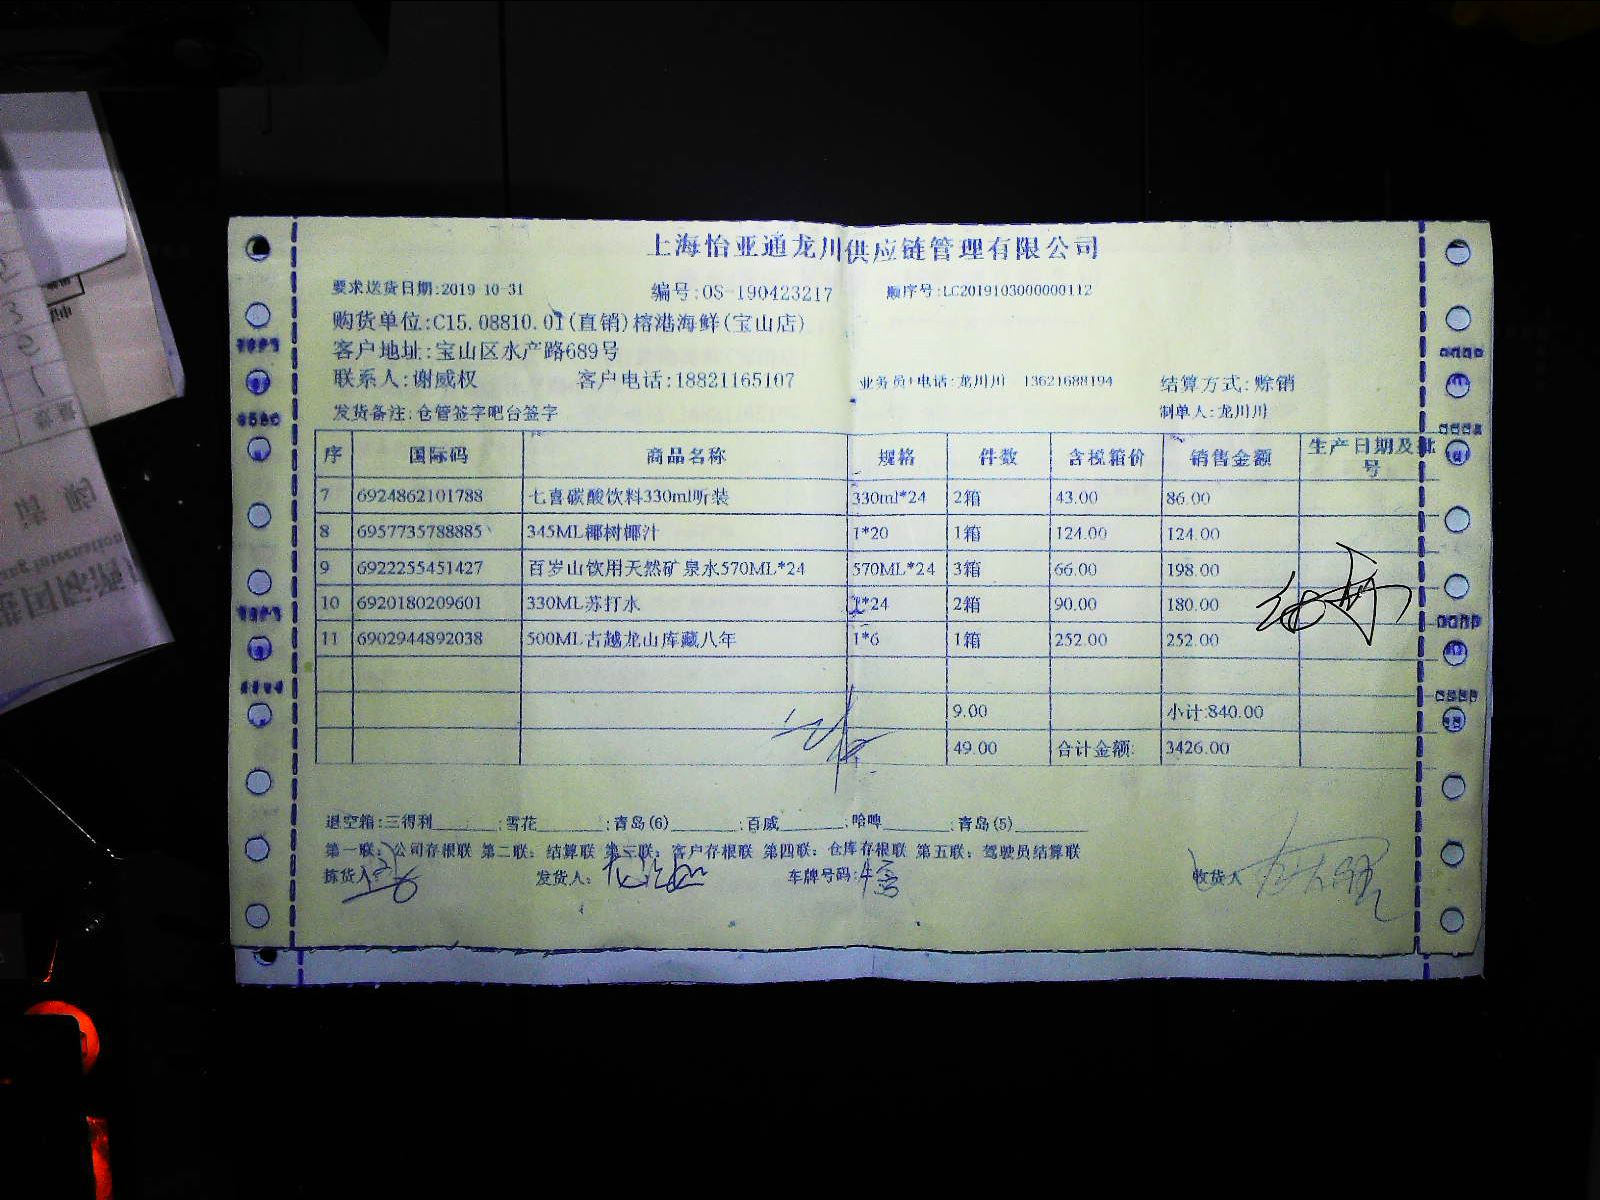 上海怡亚通龙川供应链管理有限公司
要求送货日期:2019-10-31 编号:OS-190423217 顺序号:LC2019103000000112
购货单位:C15.08810.01(直销)榕港海鲜(宝山店)
客户地址:宝山区水产路689号
联系人:谢威权 客户电话:18821165107 业务员+电话:龙川川 13621688194 结算方式:赊销
发货备注:仓管签字吧台签字 制单人:龙川川
序 国际码 商品名称 规格 件数 含税箱价 销售金额 生产日期及批号
7 6924862101788 七喜碳酸饮料330ml听装 330ml*24 2箱 43.00 86.00
8 6957735788885 345ML椰树椰汁 1*20 1箱 124.00 124.00
9 6922255451427 百岁山饮用天然矿泉水570ML*24 570ML*24 3箱 66.00 198.00
10 6920180209601 330ML苏打水 1*24 2箱 90.00 180.00
11 6902944892038 500ML古越龙山库藏八年 1*6 1箱 252.00 252.00
9.00 小计:840.00
49.00 合计金额: 3426.00
退空箱:三得利______;雪花______;青岛(6)______;百威______;哈啤______;青岛(5)______
第一联：公司存根联 第二联：结算联 第三联：客户存根联 第四联：仓库存根联 第五联：驾驶员结算联
拣货人 发货人： 车牌号码: 收货人